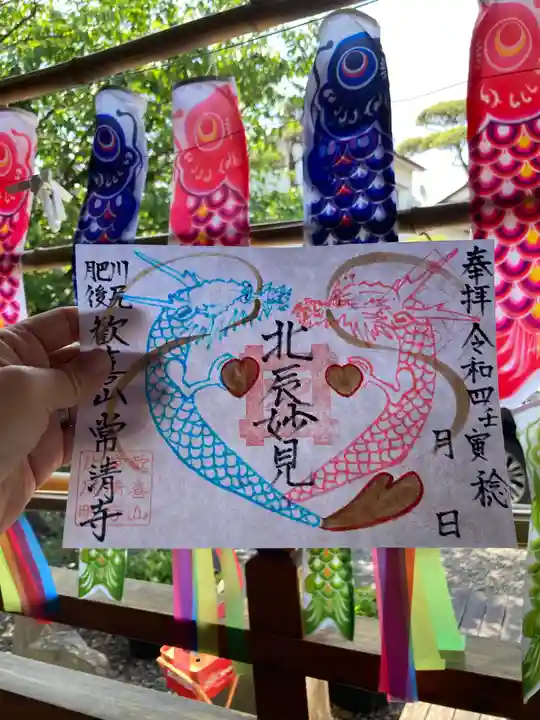 奉拝 令和四壬寅 稔
月 日
北辰妙見
肥後
川尻
歓喜山常清寺